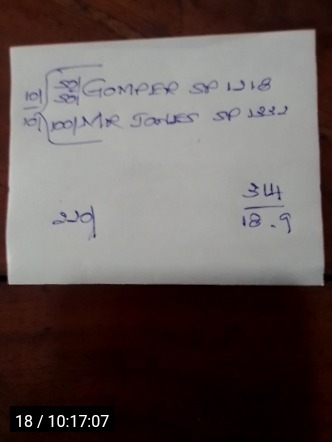 10/ 50/ 50/ GOMPER SP 1218
10/ 100/ MR JONES SP 1332
220/
314
18.9
18 / 10:17:07